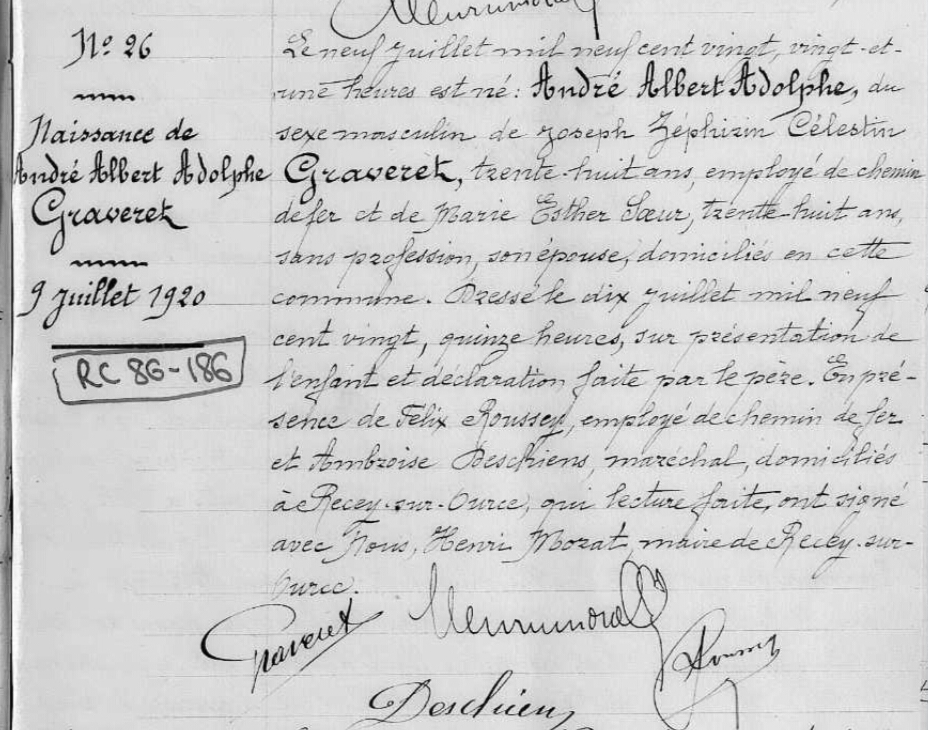 N° 26
Naissance de
André Albert Adolphe
Graveret
9 juillet 1920
RC 86-186
Le neuf juillet mil neuf cent vingt, vingt-et-
une heures est né: André Albert Adolphe, du
sexe masculin de Joseph Zéphirin Célestin
Graveret, trente-huit ans, employé de chemin
de fer et de Marie Esther Sœur, trente-huit ans,
sans profession, son épouse, domiciliés en cette
commune. Dressé le dix juillet mil neuf
cent vingt, quinze heures, sur présentation de
l'enfant et déclaration faite par le père. En pré-
sence de Félix Roussey, employé de chemin de fer
et Ambroise Deschiens, maréchal, domiciliés
à Recey-sur-Ource, qui lecture faite, ont signé
avec Nous, Henri Morat, maire de Recey-sur-
Ource.
Graveret
Deschiens